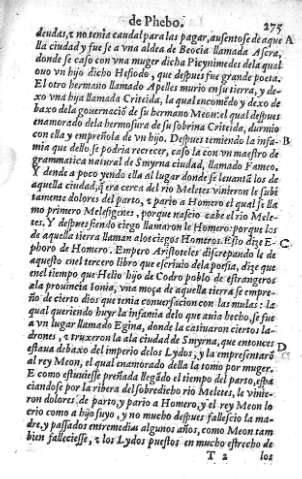 de Phebo. 275
deudas, ⁊ no tenia caudal para las pagar, ausentose de aque A
lla ciudad y fue se a vna aldea de Beocia llamada Ascra,
donde se caso con vna muger dicha Picynimedes dela qual
ouo vn hijo dicho Hesiodo, que despues fue grande poeta.
El otro hermano llamado Apelles murio en su tierra, y de-
xo vna hija llamada Criteida, la qual encomēdo y dexo de
baxo dela gouernaciō de su hermano Meon: el qual despues
enamorado dela hermosura de su sobrina Criteida, durmio
con ella y empreñola de vn hijo. Despues temiendo la infa- B
mia que dello se podria recrecer, caso la con vn maestro de
grammatica natural de Smyrna ciudad, llamado Fameo.
Y dende a poco yendo ella al lugar donde se leuantā los de
aquella ciudad, q̄ era cerca del rio Meletes vinieron le subi
tamente dolores del parto, ⁊ pario a Homero el qual se lla
mo primero Melesigenes, porque nascio cabe el rio Mele-
tes. Y despues siendo ciego llamaron le Homero: porque los
de aquella tierra llaman alos ciegos Homeros. Esto dize E- C
phoro de Homero. Empero Aristoteles discrepando le de
aquesto enel tercero libro que escriuio dela poesia, dize que
enel tiempo que Helio hijo de Codro poblo de estrangeros
ala prouincia Ionia, vna moça de aquella tierra se empre-
ño de cierto dios que tenia conuersacion con las musas: la
qual queriendo huyr la infamia delo que auia hecho, se fue
a vn lugar llamado Egina, donde la catiuaron ciertos la-
drones, ⁊ truxeron la ala ciudad de Smyrna, que entonces D
estaua debaxo del imperio delos Lydos, y la empresentarō
al rey Meon, el qual enamorado della la tomo por muger.
E como estuuiesse preñada llegādo el tiempo del parto, espa
ciandose por la ribera del sobredicho rio Meletes, le vinie-
ron dolores de parto, y pario a Homero, y el rey Meon lo
crio como a hijo suyo, y no mucho despues fallescio la ma-
dre, y passados entremedias algunos años, como Meon tam
bien falleciesse, ⁊ los Lydos puestos en mucho estrecho de
T 2 los